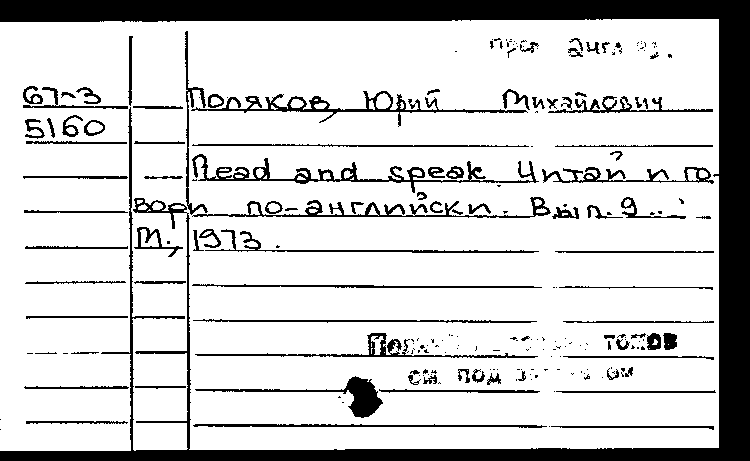 преп англ яз.
67-3 Поляков, Юрий Михайлович
5160
Read and speak. Читай и го-
вори по-английски. Вып. 9...
М., 1973.
томов
см. под